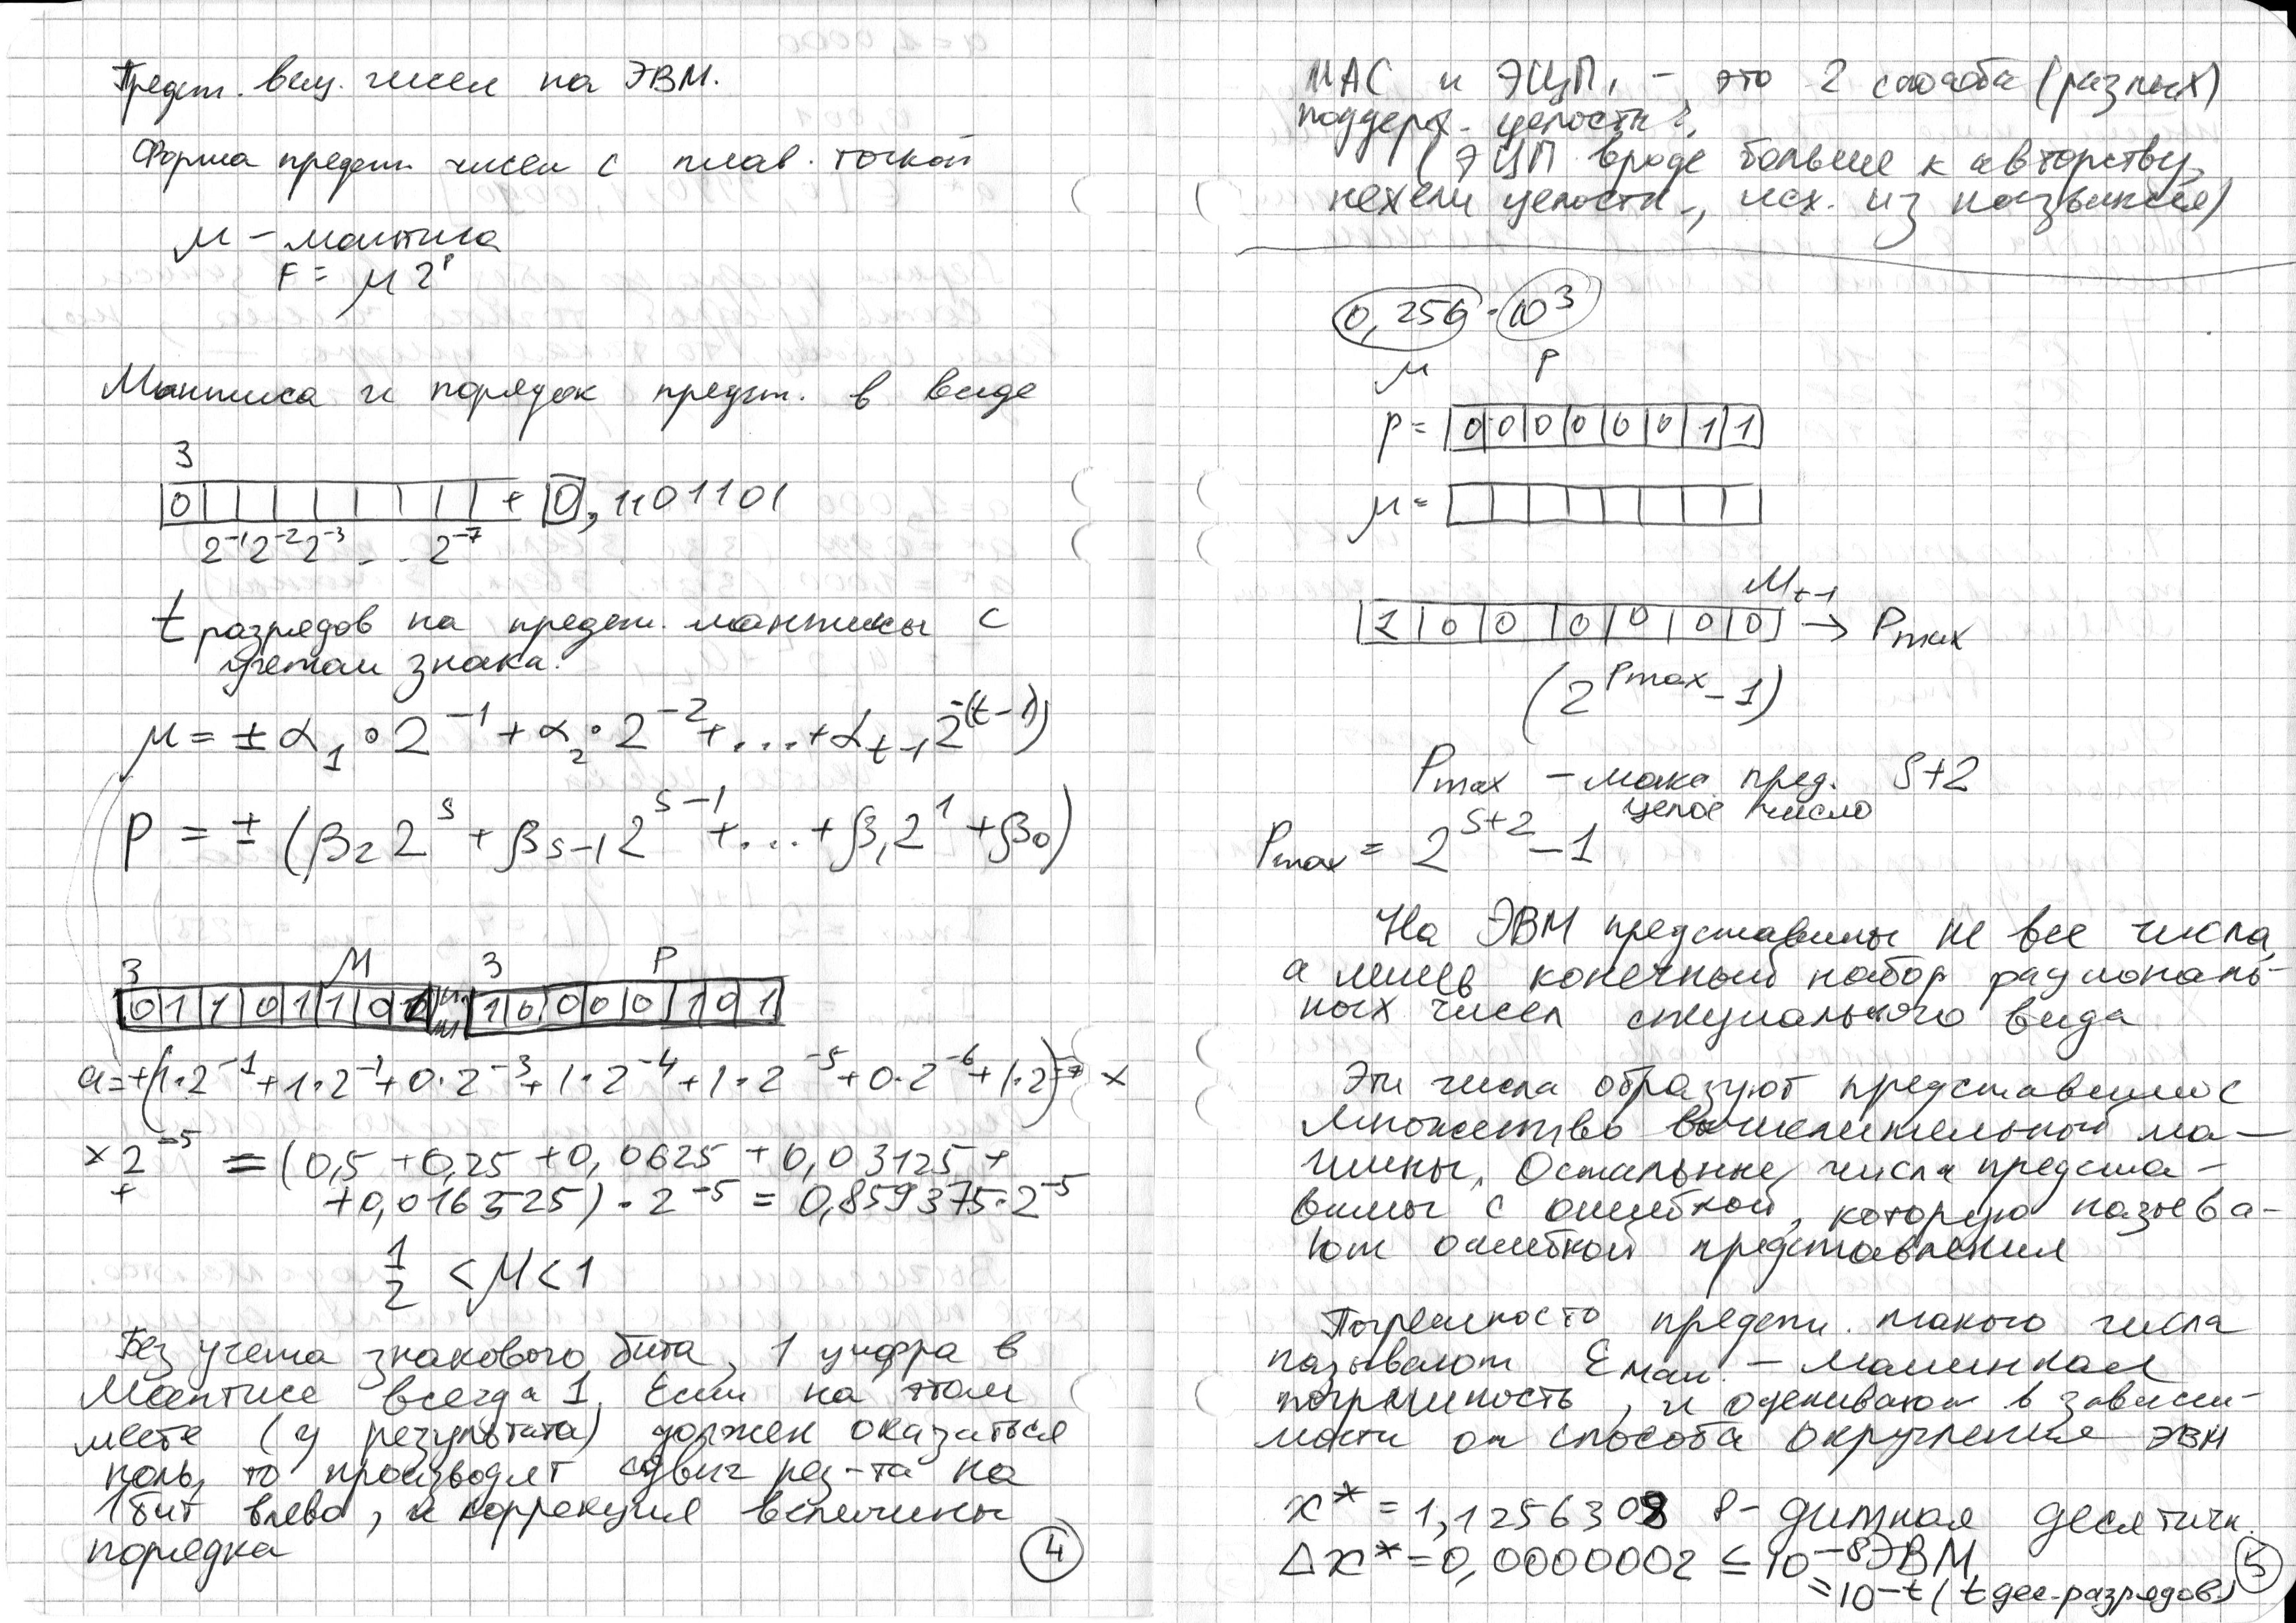 Предст. вещ. чисел на ЭВМ.
Форма предст. чисел с плав. точкой
μ – мантиса
F = μ 2^p
Мантиса и порядок предст. в виде
З
0 + 0, 1101101
2^-1 2^-2 2^-3 . . . 2^-7
t разрядов на предст. мантисы с
учетом знака.
μ = ± α_1 · 2^-1 + α_2 · 2^-2 + ... + α_t-1 2^-(t-1)
P = ± (β_2 2^s + β_s-1 2^s-1 + ... + β_1 2^1 + β_0)
З М З Р
0 1 1 0 1 1 0 1 1 0 0 0 0 1 0 1
a = +(1·2^-1 + 1·2^-1 + 0·2^-3 + 1·2^-4 + 1·2^-5 + 0·2^-6 + 1·2^-7) ×
× 2^-5 = (0,5 + 0,25 + 0,0625 + 0,03125 +
+ + 0,016325) · 2^-5 = 0,859375 · 2^-5
1/2 < M < 1
Без учета знакового бита, 1 цифра в
Мантисе всегда 1. Если на этом
месте (у результата) должен оказаться
ноль, то производят сдвиг рез-та на
1 бит влево, и коррекция величины
порядка
4
MAC и ЭЦП, – это 2 способа (разных)
поддерж. целостн?,
(ЭЦП вроде больше к авторству,
нежели целостн-, исх. из названия)
0,256 · 10^3
μ P
p = 0 0 0 0 0 0 1 1
μ =
M_t-1
1 0 0 0 0 0 0 → P_max
(2^Pmax - 1)
P_max – макс пред. S+2
целое число
P_max = 2^S+2 - 1
На ЭВМ представимы не все числа,
а лишь конечный набор рациональ-
ных чисел специального вида
Эти числа образуют представимое
множество вычислительной ма-
шины. Остальные числа предста-
вимы с ошибкой, которую называ-
ют ошибкой представления
Погрешность предст. такого числа
называют ε маш. – машинная
погрешность, и оценивают в зависи-
мости от способа округления ЭВМ
x* = 1,1256308 8- дитная десятичн.
Δx* = 0,0000002 ≤ 10^-8 ЭВМ
= 10^-t (t дес. разрядов)
5